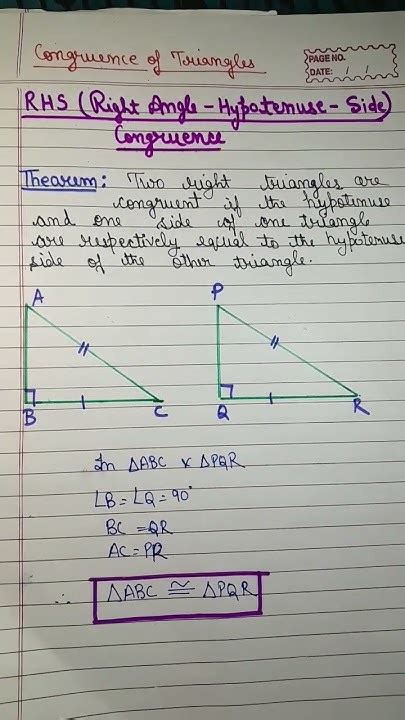 Congruence of Triangles
PAGE NO.
DATE: / /
RHS (Right Angle - Hypotenuse - Side)
Congruence
Theorem: Two right triangles are
congruent if the hypotinuse
and one side of one triangle
are respectively equal to the hypotenuse
side of the other triangle.
A
P
B
C
Q
R
In △ABC & △PQR
∠B = ∠Q = 90°
BC = QR
AC = PR
∴ △ABC ≅ △PQR